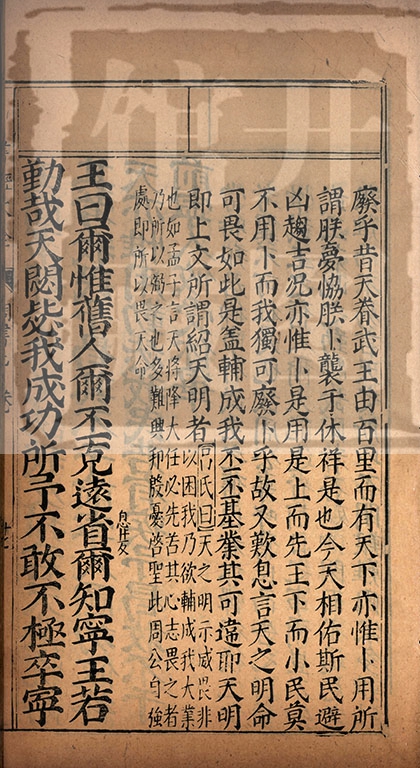 廢乎昔天眷武王由百里而有天下亦惟卜用所
謂朕夢協朕卜襲于休祥是也今天相佑斯民避
凶趨吉況亦惟卜是用是上而先王下而小民莫
不用卜而我獨可廢卜乎故又歎息言天之明命
可畏如此是蓋輔成我丕丕基業其可違耶天明
即上文所謂紹天明者
呂氏曰天之明示威畏非
以困我乃欲輔成我大業
也如孟子言天將降大任必先苦其心志畏之者
乃所以弼之也多難興邦殷憂啓聖此周公自強
處即所以畏天命
王曰爾惟舊人爾丕克遠省爾知寧王若
息井反
勤哉天閟毖我成功所予不敢不極卒寧